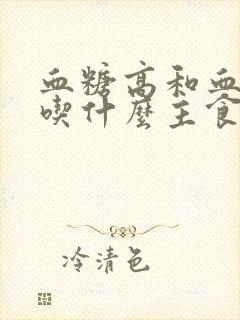 血糖高和血
喫什麼主食
冷清色